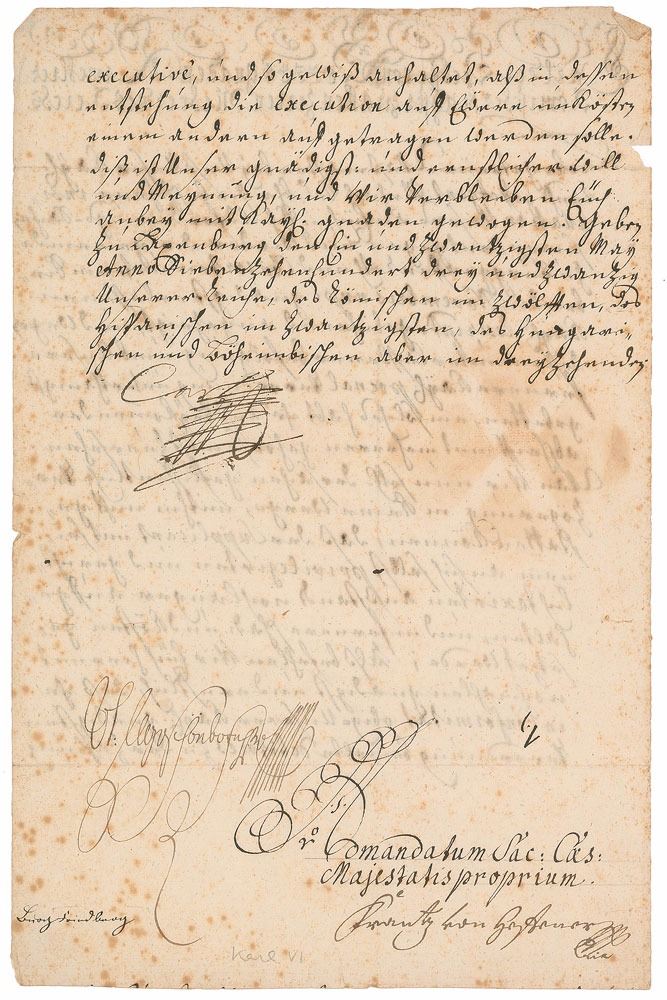 executivè, und so gewiß anhaltet, alß in dessen
entstehung die execution auf Euere unkösten
einem andern aufgetragen werden solle.
diß ist Unser gnädigst: und ernstlicher will
und Meynung, und Wir Verbleiben Euch
anbey mit Kayl: gnaden gewogen. Geben
Zu Laxenburg den Ein und Zwantzigsten May
Anno Siebenzehenhundert drey und Zwantzig
Unserer Reiche, des Römischen im Zwölfften, des
Hispanischen im Zwantzigsten, des Hungari-
schen und Böheimbischen aber im dreyzehenden
Carl
Vt. Schönborn
Ad mandatum Sac: Cæs:
Majestatis proprium.
von
Burg Friedberg
Karl VI